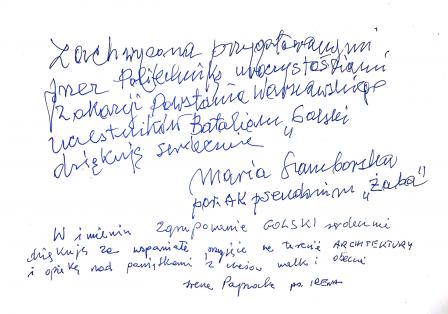 Zachwycona przygotowanymi
przez Politechnikę uroczystościami
z okazji Powstania Warszawskiego
uczestników Batalionu "Golski"
dziękuję serdecznie
Maria
por. AK pseudonim "Żaba"
W imieniu zgrupowania GOLSKI serdecznie
dziękuję za wspaniałe przyjęcie na terenie ARCHITEKTURY
i opiekę nad pamiątkami z czasów walki i obecnie
Irena ps. IRENA